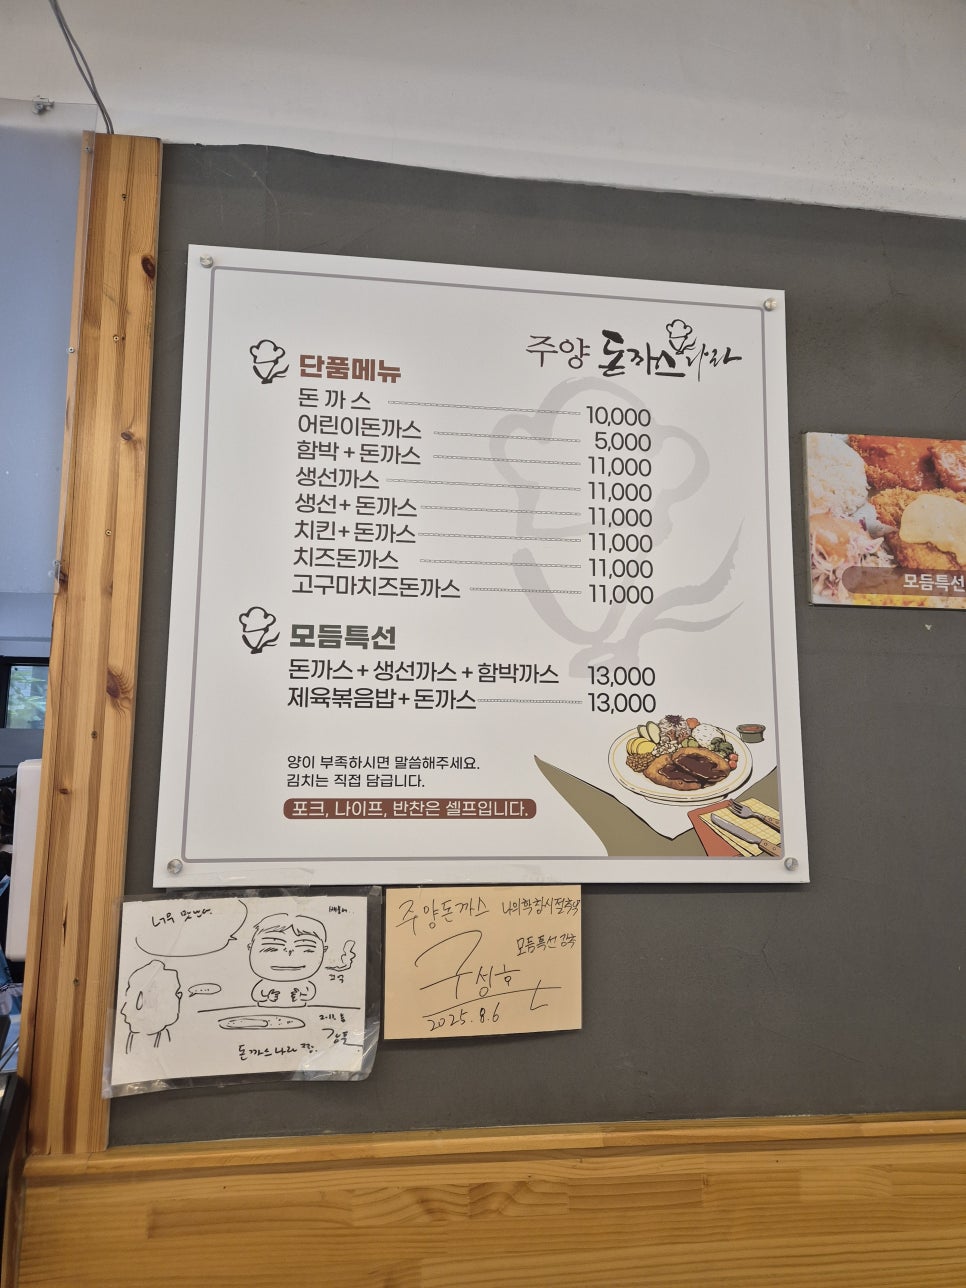 주양 돈까스나라
단품메뉴
돈 까 스 10,000
어린이돈까스 5,000
함박 + 돈까스 11,000
생선까스 11,000
생선 + 돈까스 11,000
치킨 + 돈까스 11,000
치즈돈까스 11,000
고구마치즈돈까스 11,000
모듬특선
돈까스 + 생선까스 + 함박까스 13,000
제육볶음밥 + 돈까스 13,000
양이 부족하시면 말씀해주세요.
김치는 직접 담급니다.
포크, 나이프, 반찬은 셀프입니다.
모듬특선
너무 맛있다.
돈까스나라 짱.
주양돈까스 나의 학창시절 추억
모듬특선 강추
구성호
2025.8.6